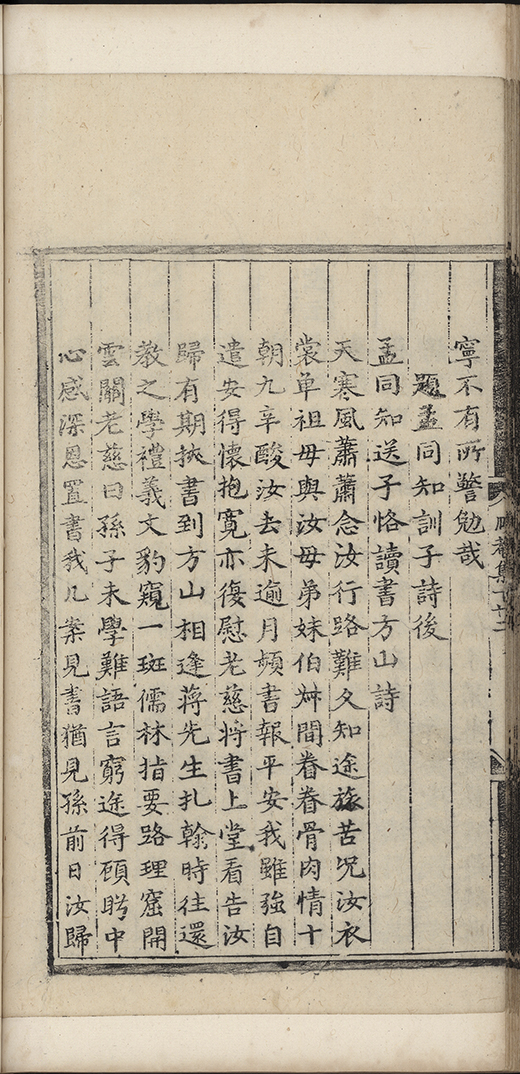 寧不有所警勉哉
題孟同知訓子詩後
孟同知送子恪讀書方山詩
天寒風蕭蕭念汝行路難久知途旅苦况汝衣
裳单祖母與汝母弟妹伯叔間眷眷骨肉情十
朝九辛酸汝去未逾月頻書報平安我雖強自
遣安得懷抱寬亦復慰老慈将書上堂看告汝
歸有期挾書到方山相逢蒋先生扎翰時往還
教之學禮義文豹窺一斑儒林指要路理窟開
雲關老慈曰孫子未學難語言窮途得顧眄中
心感深恩置書我几案見書猶見孫前日汝歸